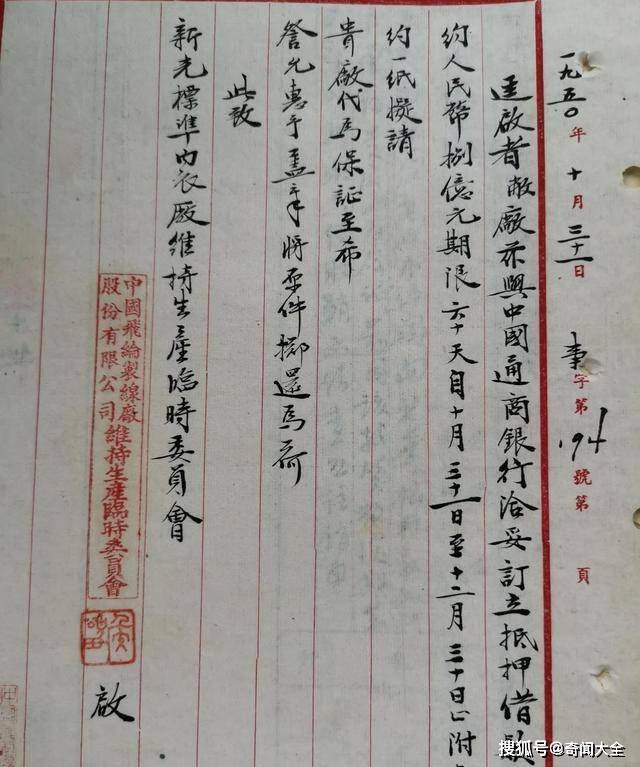 一九五〇年十月三十一日 事字第194號第 頁
逕啟者敝廠茲與中國通商銀行洽妥訂立抵押借款
約人民幣捌億元期限六十天自十月三十一日至十二月三十日止附
約一紙擬請
貴廠代為保証至希
詧允惠予蓋章將原件擲還為荷
此致
新光標準內衣厰維持生產臨時委員會
中國飛綸製線廠
股份有限公司
維持生產臨時委員會
啟
搜狐号@奇闻大全